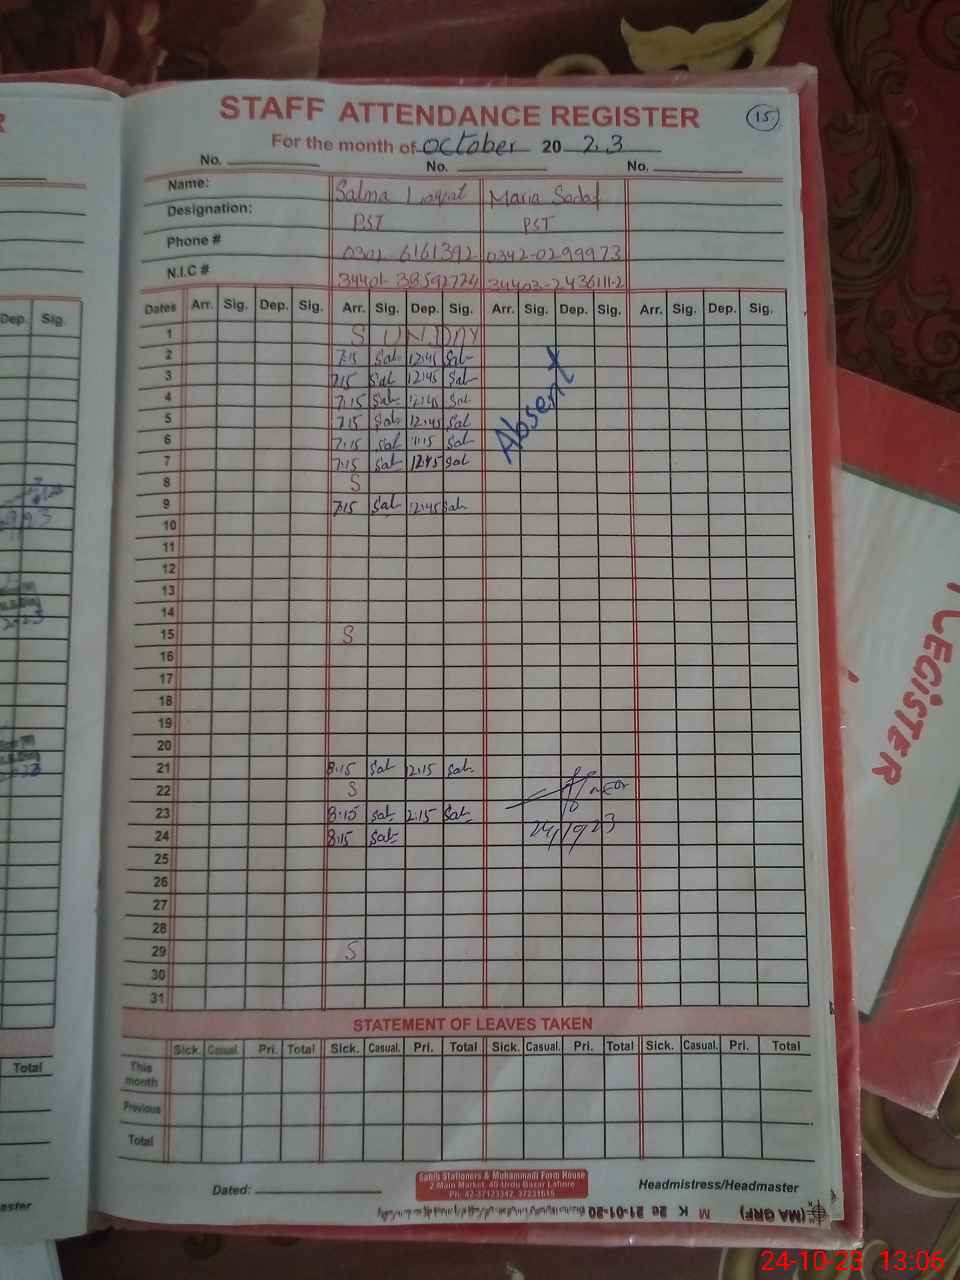 STAFF ATTENDANCE REGISTER
15
For the month of October 20 23
No. No. No.
Name: Salma Liaqat Maria Sadaf
Designation: PST PST
Phone # 0302-6161392 0342-0299973
N.I.C # 34403-2436111-2
Dates Arr. Sig. Dep. Sig. Arr. Sig. Dep. Sig. Arr. Sig. Dep. Sig. Arr. Sig. Dep. Sig.
1 SUNDAY
2 7:15 Sal 12:45 Sal
3 7:15 Sal 12:45 Sal
4 7:15 Sal 12:45 Sal
5 7:15 Sal 12:45 Sal
6 7:15 Sal 11:15 Sal
7 7:15 Sal 12:45 Sal
Absent
8 S
9 7:15 Sal 12:45 Sal
10
11
12
13
14
15 S
16
17
18
19
20
21 8:15 Sal 2:15 Sal
22 S
23 8:15 Sal 2:15 Sal
24 8:15 Sal
25
26
27
28
29 S
30
31
STATEMENT OF LEAVES TAKEN
Sick. Casual. Pri. Total Sick. Casual. Pri. Total Sick. Casual. Pri. Total Sick. Casual. Pri. Total
This month
Previous
Total
Dated:
Sahib Stationers & Muhammadi Form House
2 Main Market, 40 Urdu Bazar Lahore
Ph: 42-37123342, 37231615
Headmistress/Headmaster
Dep. Sig.
Total
REGISTER
24-10-23 13:06